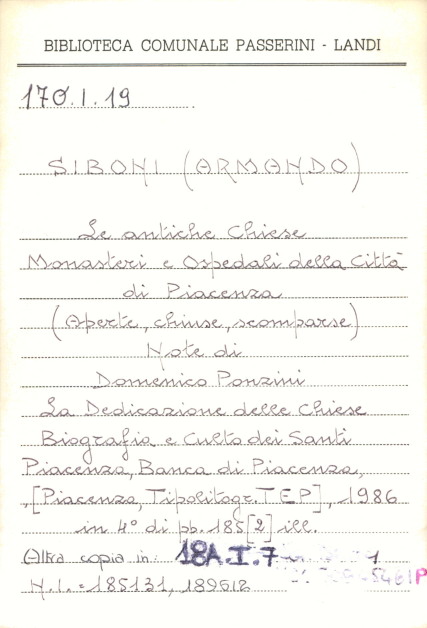 BIBLIOTECA COMUNALE PASSERINI - LANDI
170.I.19
SIBONI (ARMANDO)
Le antiche Chiese
Monasteri e Ospedali della Città
di Piacenza
(Aperte, chiuse, scomparse)
Note di
Domenico Ponzini
La Dedicazione delle Chiese
Biografia e Culto dei Santi
Piacenza, Banca di Piacenza,
, [Piacenza, Tipolitogr. T E P], 1986
in 4° di pp. 185 [2] ill.
Altra copia in: 18A.I.7
N.I. = 185131, 189612